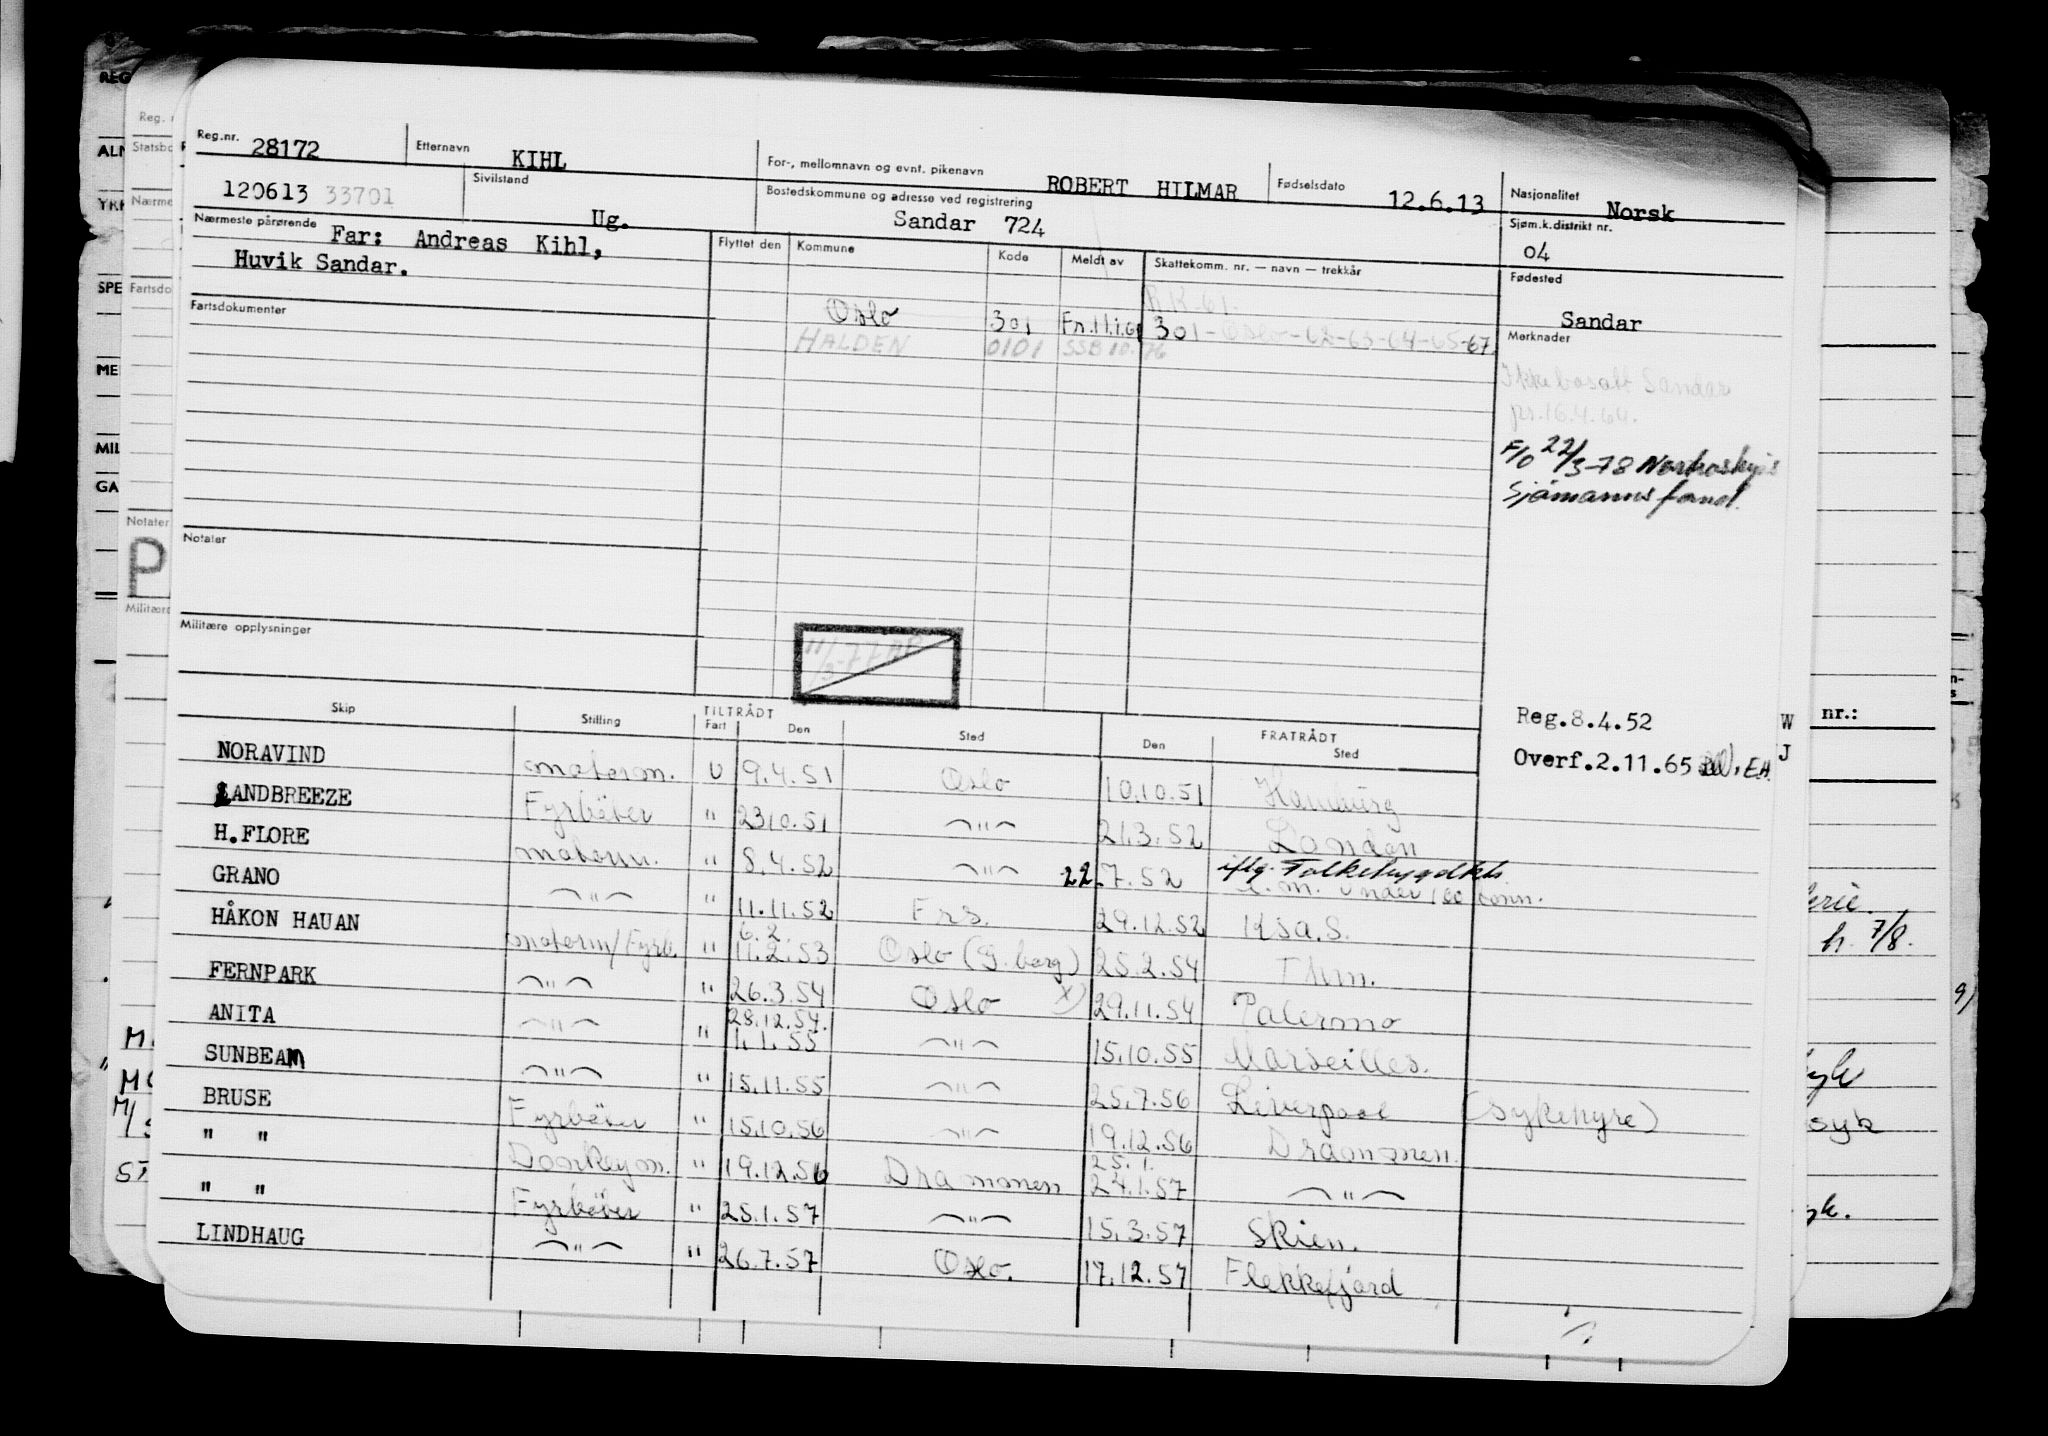 Reg.nr. 28172 Etternavn KIHL For-, mellomnavn og evnt. pikenavn ROBERT HILMAR Fødselsdato 12.6.13 Nasjonalitet Norsk
120613 33701 Sivilstand Ug. Bostedskommune og adresse ved registrering Sandar 724 Sjøm.k.distrikt nr. 04
Nærmeste pårørende Far: Andreas Kihl,
Huvik Sandar.
Flyttet den Kommune Kode Meldt av Skattekomm. nr. — navn — trekkår
Fødested Sandar
Fartsdokumenter
R.K. 61.
Oslo 301 Fr.11.1.61 301-Oslo-62-63-64-65-67.
HALDEN 0101 SSB 10.76
Merknader
Ikke bosatt Sandar
pr.16.4.64.
F/O 22/3-78
Sjømannsfond.
Notater
Militære opplysninger
11/3-77
Reg.8.4.52
Overf.2.11.65 E.A.
Skip Stilling TILTRÅDT Fart Den Sted FRATRÅDT Den Sted
NORAVIND motorm. U 9.4.51 Oslo 10.10.51 Hamburg
LANDBREEZE Fyrbøter " 2310.51 —"— 21.3.52 London
H.FLORE motorm. " 8.4.52 —"— 22.7.52 iflg.
under 100 tonn.
GRANO —"— " 11.11.52 Frs. 29.12.52 Krsa.S.
HÅKON HAUAN motorm/Fyrb. " 6.2. 11.2.53 Oslo (G.borg) 25.2.54 Thm.
FERNPARK —"— " 26.3.54 Oslo x) 29.11.54 Palermo
ANITA —"— " 28.12.54. 1.1.55 —"— 15.10.55 Marseilles.
SUNBEAM —"— " 15.11.55 —"— 25.7.56 Liverpool (sykehyre)
BRUSE Fyrbøter " 15.10.56 —"— 19.12.56 Drammen.
" " Donkeym. " 19.12.56 Drammen 25.1. 24.1.57 —"—
" " Fyrbøter " 25.1.57 —"— 15.3.57 Skien.
LINDHAUG —"— " 26.7.57 Oslo. 17.12.57 Flekkefjord
REG
Reg. n
ALN
Statsbo
YRK
Nærme
SPE
Fartsdo
ME
MIL
GA
Notater
P
Militære
W nr.:
J
h. 7/8.
syk
yk.